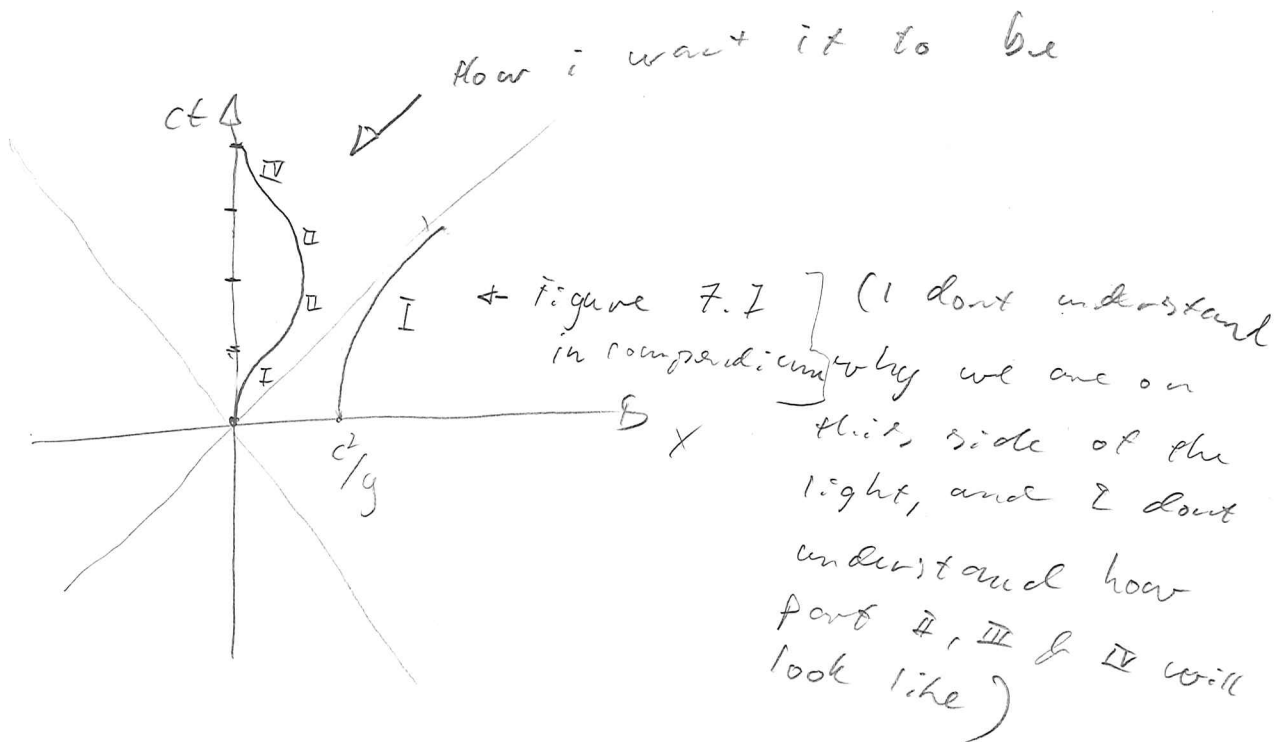 How i want it to be
ct
IV
II
II
I
I
← Figure 7.I
in compendium
(I dont understand
why we are on
this side of the
light, and I dont
understand how
part II, III & IV will
look like)
x
c²/g